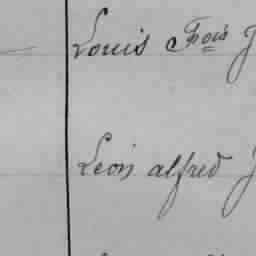 Louis Fçois J
Léon alfred J